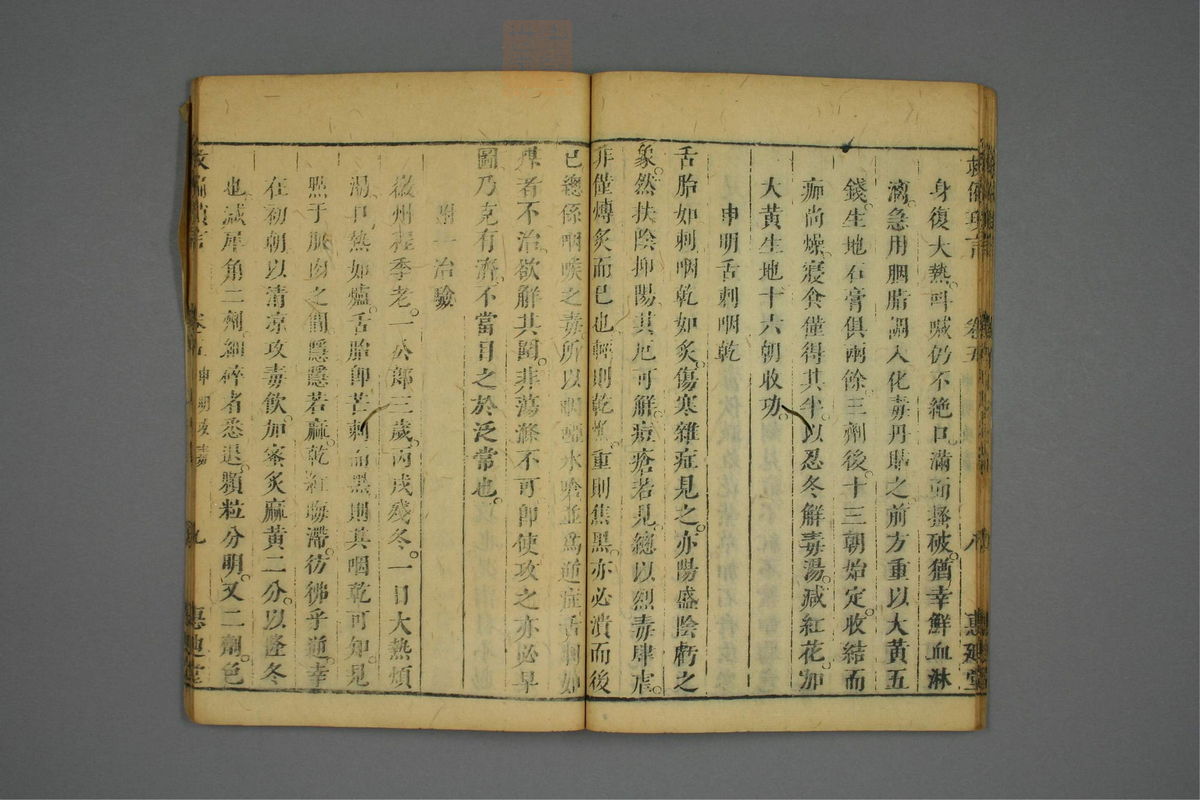 身復大熱呌喊仍不絶口滿面搔破猶幸鮮血淋
漓急用胭脂調入化毒丹貼之前方重以大黃五
錢生地石膏俱兩餘三劑後十三朝始定收結而
痂尚燥寢食僅得其半以忍冬解毒湯減紅花加
大黃生地十六朝收功
申明舌刺咽乾
舌胎如刺咽乾如炙傷寒雜症見之亦陽盛陰虧之
象然扶陰抑陽其厄可解痘瘡若見總以烈毒肆虐
非僅煿炙而已也輕則乾燋重則焦黑亦必潰而後
已總係咽喉之毒所以水嗆並爲逆症舌刺如
者不治欲解其圍非蕩滌不可卽使攻之亦必早
圖乃克有濟不當目之於泛常也
附一治驗
徽州程季老一公郎三歲丙戌殘冬一日大熱煩
渴口熱如爐舌胎卽芒刺而黑則其咽乾可知見
㸃于肌肉之間隱隱若麻乾紅晦滯彷彿乎逆幸
在初朝以清凉攻毒飲加蜜炙麻黃二分以隆冬
也減犀角二劑細碎者悉退顆粒分明又二劑色
卷五
申明攻毒
九
惠迪堂
卷五
八
惠迪堂